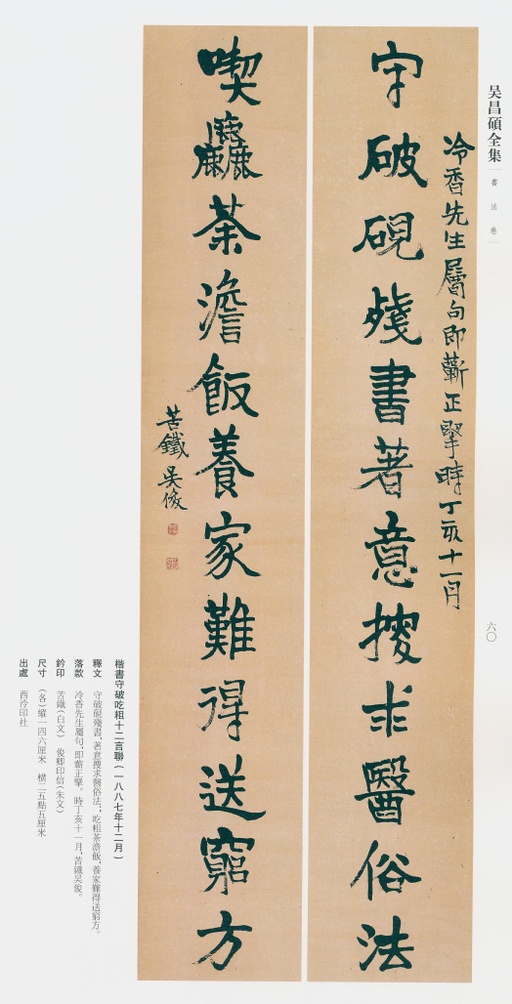 吴昌碩全集
書法卷
冷香先生屬句即蘄正擥時丁亥十一月
守破硯殘書著意搜求醫俗法
喫麤茶澹飯養家難得送窮方
苦鐵吳俊
六〇
楷書守破吃粗十二言聯(一八八七年十二月)
釋文 守破硯殘書,著意搜求醫俗法;吃粗茶澹飯,養家難得送窮方。
落款 冷香先生屬句,即蘄正擥。時丁亥十一月,苦鐵吴俊。
鈐印 苦鐵(白文) 俊卿印信(朱文)
尺寸 (各)縱一四六厘米 橫二五點五厘米
出處 西泠印社